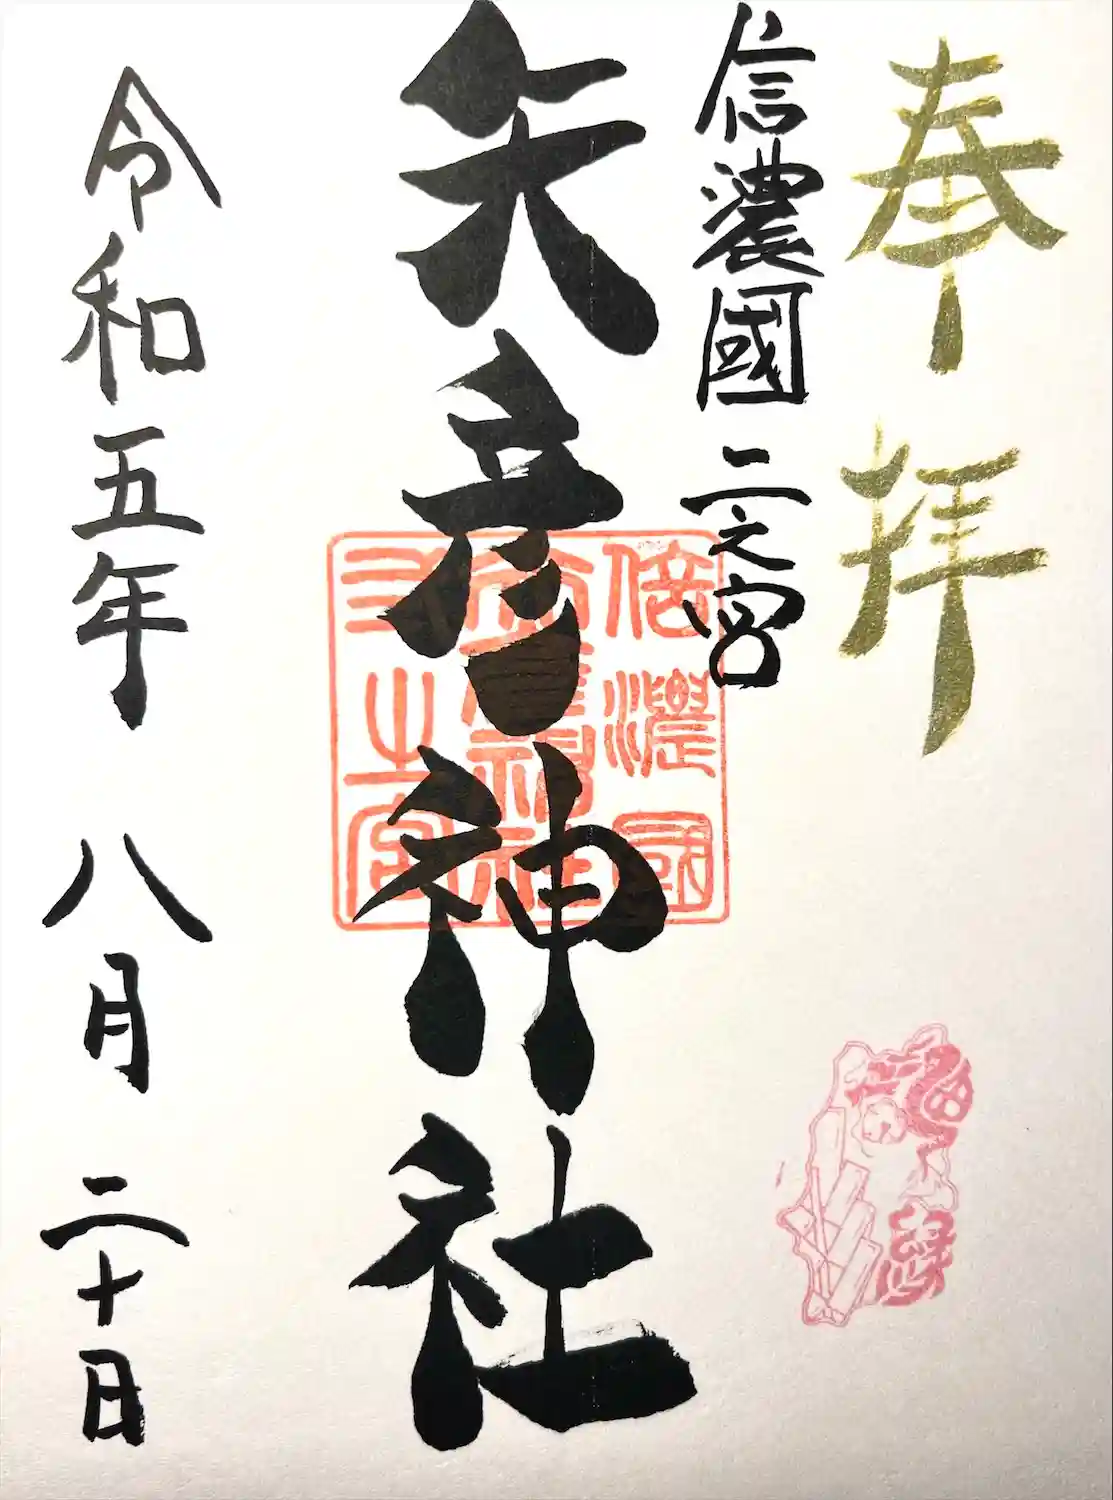 奉拝
信濃國二之宮
矢彦神社
令和五年 八月 二十日
信濃國
二之宮